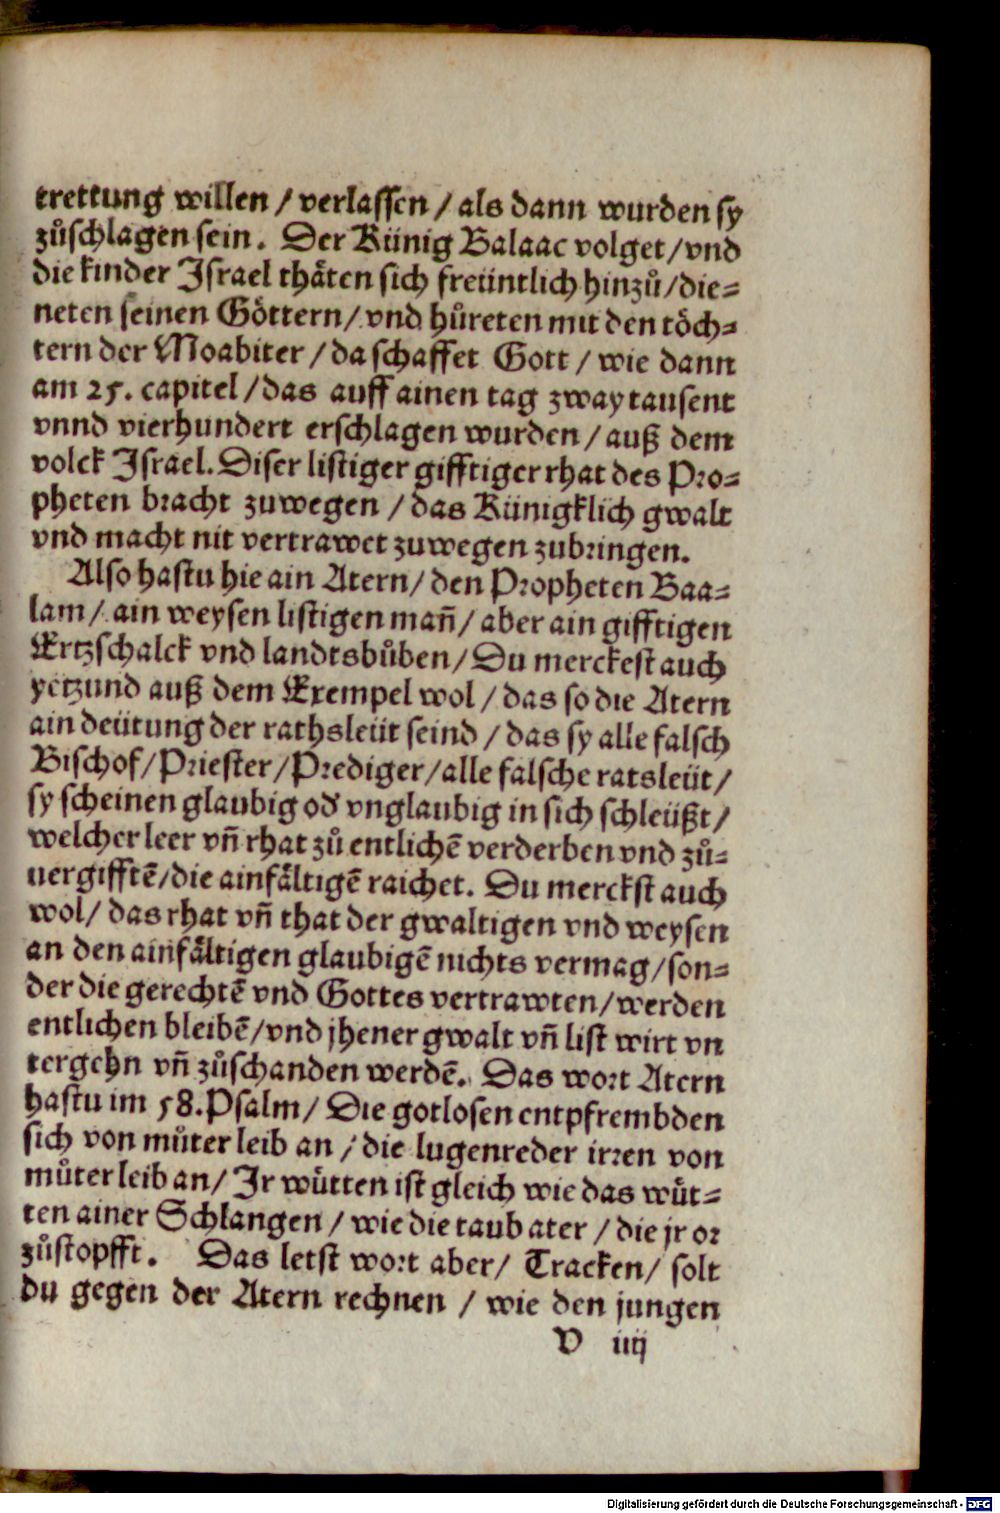 trettung willen / verlassen / als dann wurden sy
zůschlagen sein. Der Künig Balaac volget / vnd
die kinder Israel thäten sich freüntlich hinzů / die=
neten seinen Göttern / vnd hůreten mit den töch=
tern der Moabiter / da schaffet Gott / wie dann
am 25. capitel / das auff ainen tag zway tausent
vnnd vierhundert erschlagen wurden / auß dem
volck Israel. Diser listiger gifftiger rhat des Pro=
pheten bracht zuwegen / das Künigklich gwalt
vnd macht nit vertrawet zuwegen zubringen.
Also hastu hie ain Atern / den Propheten Baa=
lam / ain weysen listigen mañ / aber ain gifftigen
Ertzschalck vnd landtsbůben / Du merckest auch
yetzund auß dem Exempel wol / das so die Atern
ain deütung der rathsleüt seind / das sy alle falsch
Bischof / Priester / Prediger / alle falsche ratsleüt /
sy scheinen glaubig od' vnglaubig in sich schleüßt /
welcher leer vñ rhat zů entlichē verderben vnd zů=
uergifftē / die ainfältigē raichet. Du merckst auch
wol / das rhat vñ that der gwaltigen vnd weysen
an den ainfältigen glaubigē nichts vermag / son=
der die gerechtē vnd Gottes vertrawten / werden
entlichen bleibē / vnd jhener gwalt vñ list wirt vn
tergehn vñ zůschanden werdē. Das wort Atern
hastu im 58. Psalm / Die gotlosen entpfrembden
sich von můter leib an / die lugenreder irren von
můter leib an / Jr wütten ist gleich wie das wüt=
ten ainer Schlangen / wie die taub ater / die jr or
zůstopfft. Das letst wort aber / Tracken / solt
du gegen der Atern rechnen / wie den jungen
V iiij
Digitalisierung gefördert durch die Deutsche Forschungsgemeinschaft - DFG